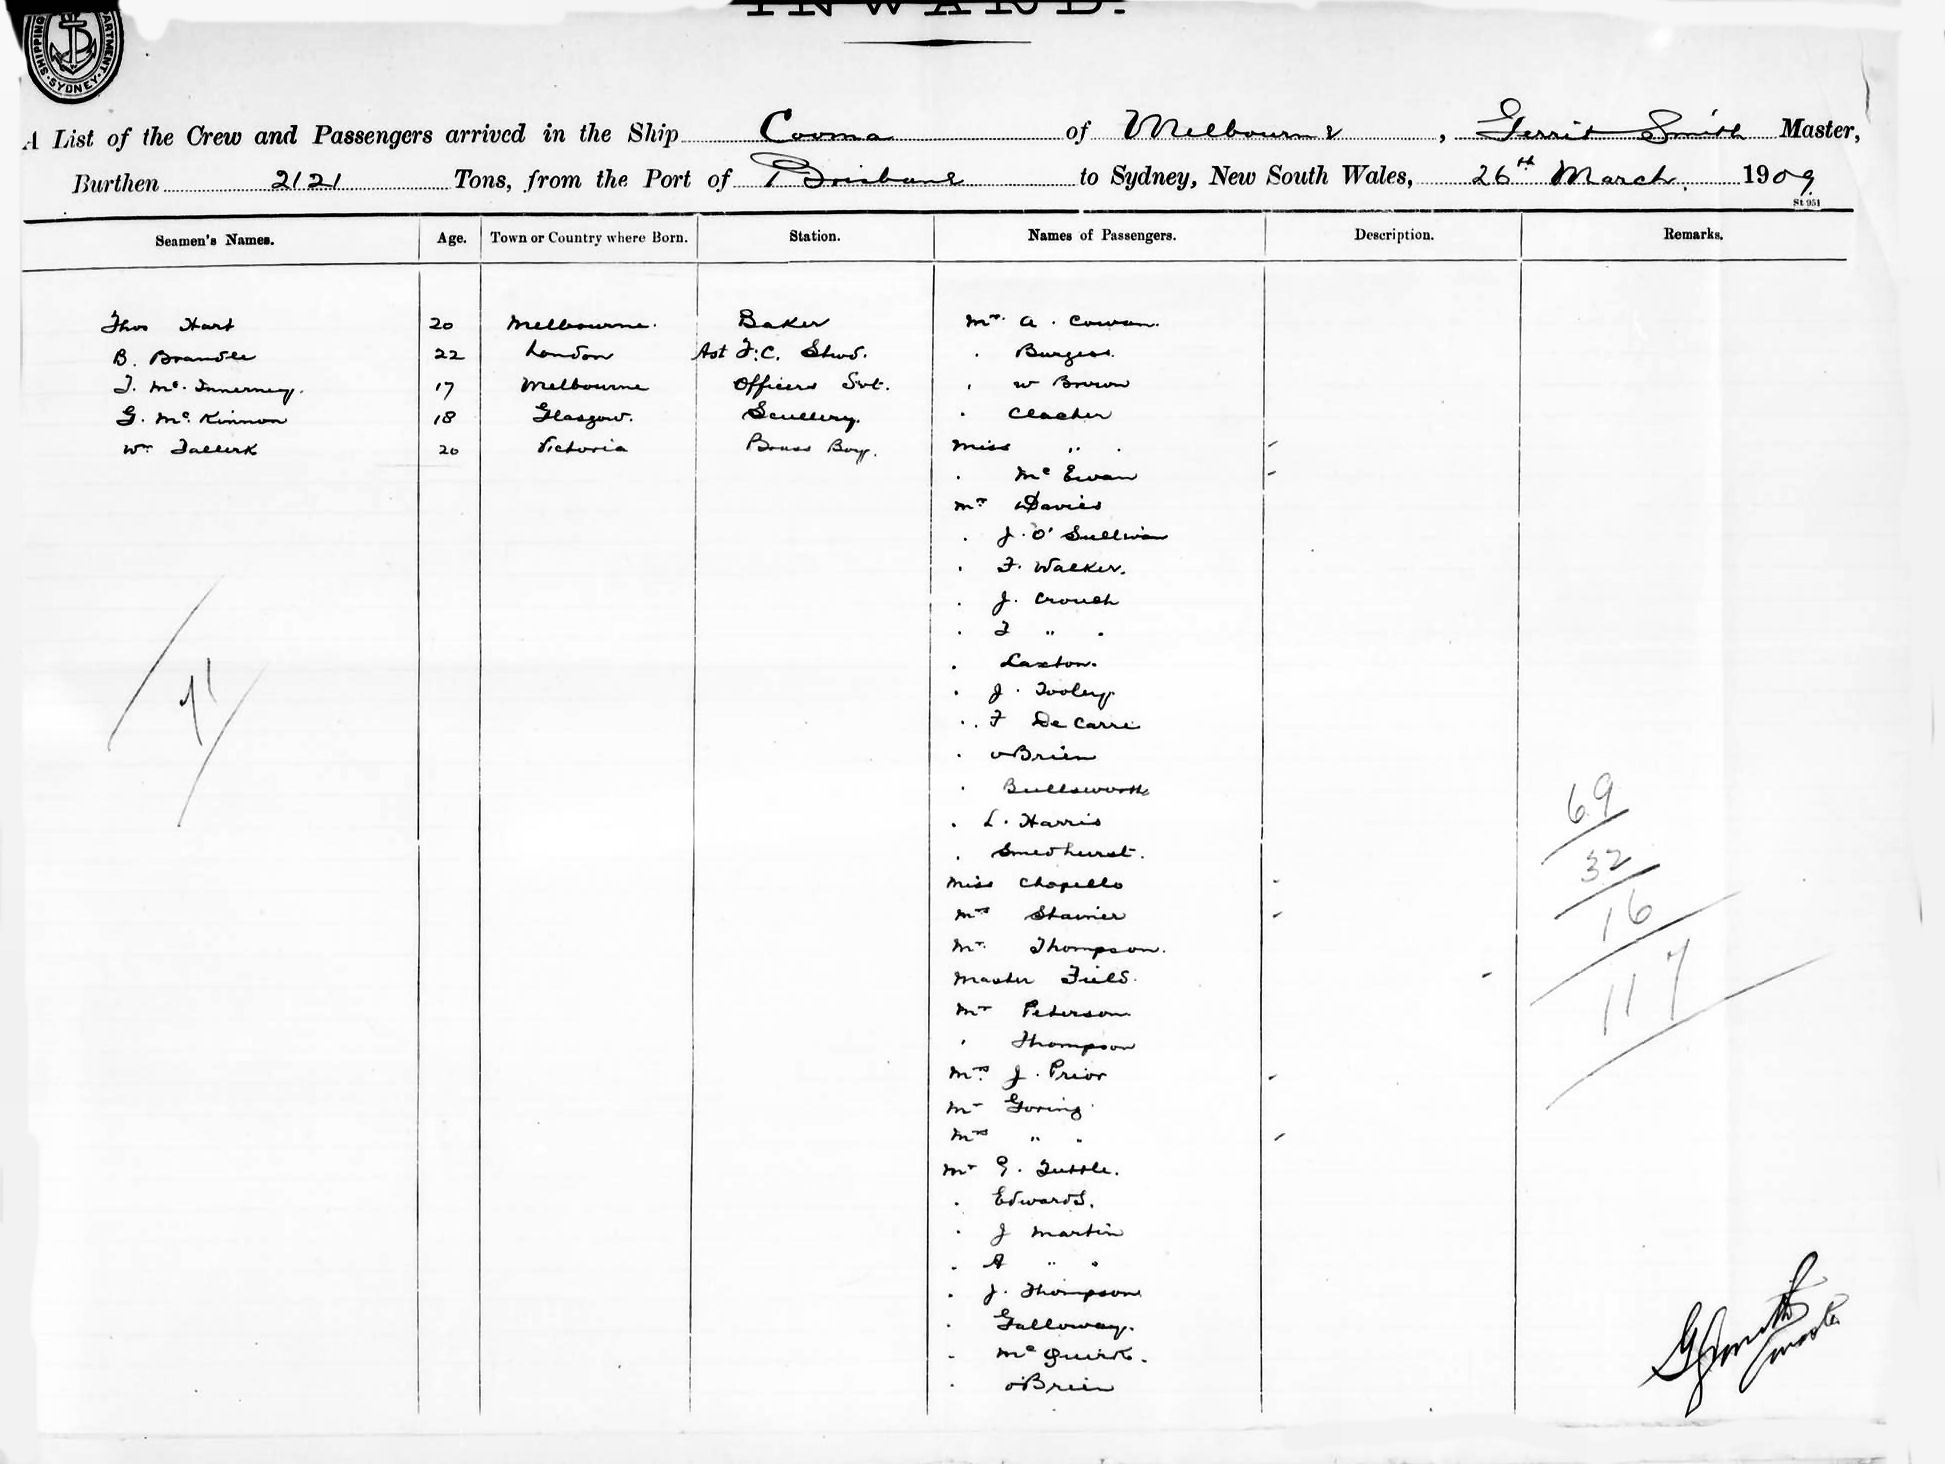 INWARD.
SHIPPING DEPARTMENT · SYDNEY ·
A List of the Crew and Passengers arrived in the Ship Cooma of Melbourne, Gerrit Smith Master,
Burthen 2121 Tons, from the Port of Brisbane to Sydney, New South Wales, 26th March 1909
St 951
Seamen's Names. Age. Town or Country where Born. Station. Names of Passengers. Description. Remarks.
Thos Hart 20 Melbourne. Baker Mr. A. Cowan.
B. Brandle 22 London Ast F.C. Stwd. . Burgess.
J. McInnerney. 17 Melbourne Officers Svt. . W Brown
G. McKinnon 18 Glasgow. Scullery. . Clacher
Wm 20 Victoria Brass Boy. Miss " .
. McEwan
Mr Davies
. J. O'Sullivan
. F. Walker.
. J. Crouch
. " .
. Laxton.
. J. Tooley.
. F De Carre
. O'Brien
. Bullsworth
. L. Harris
. Smedhurst.
Miss Chapello
Mrs Stainer
Mr. Thompson.
Master Field.
Mr Peterson
. Thompson
Mrs J. Prior
Mr Goring.
Mrs " "
Mr G. Tuttle.
. Edwards.
. J Martin
. A " "
. J. Thompson
. Galloway.
. McQuirk.
. O'Brien
71
69
32
16
117
G Smith
Master